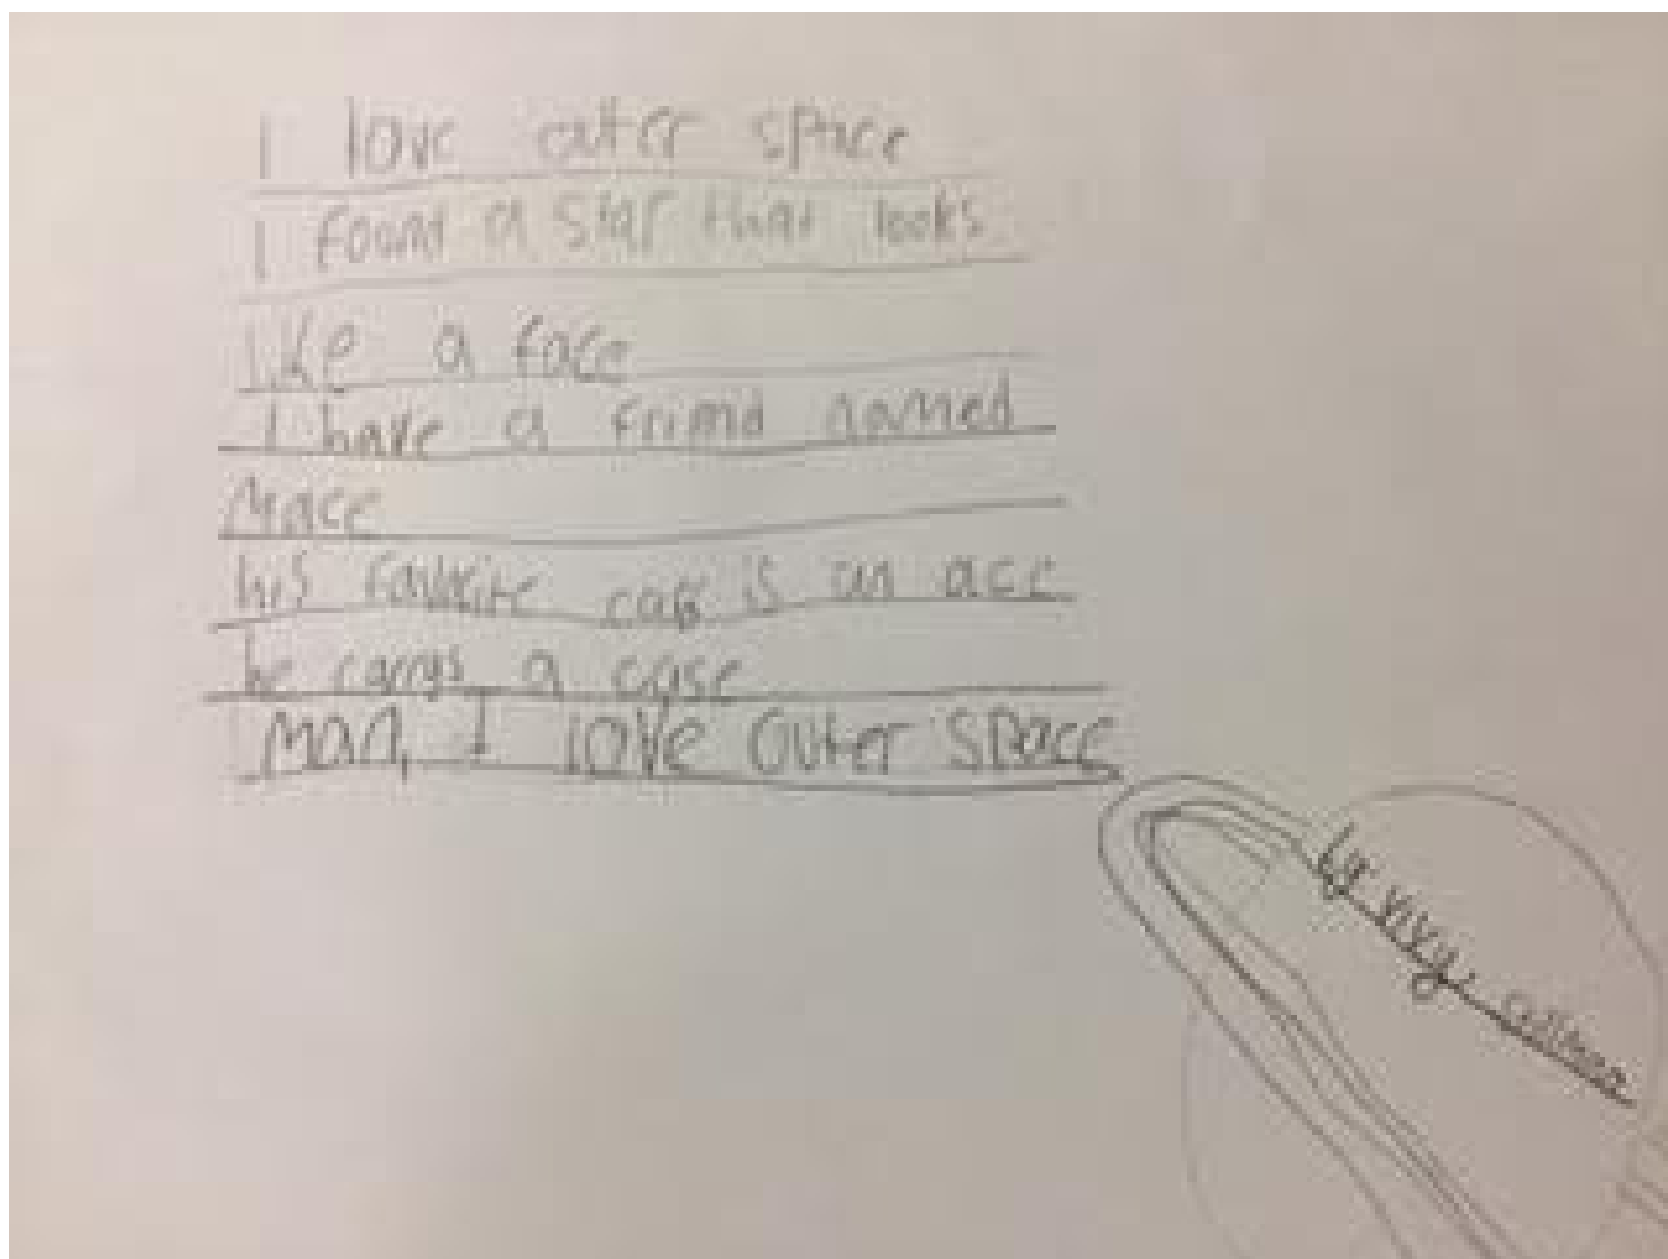 I love outer space
I found a star that looks
like a face
I have a frind named
Mace
his favorite card is an ace
he carrys a case
Man, I love outer space
by